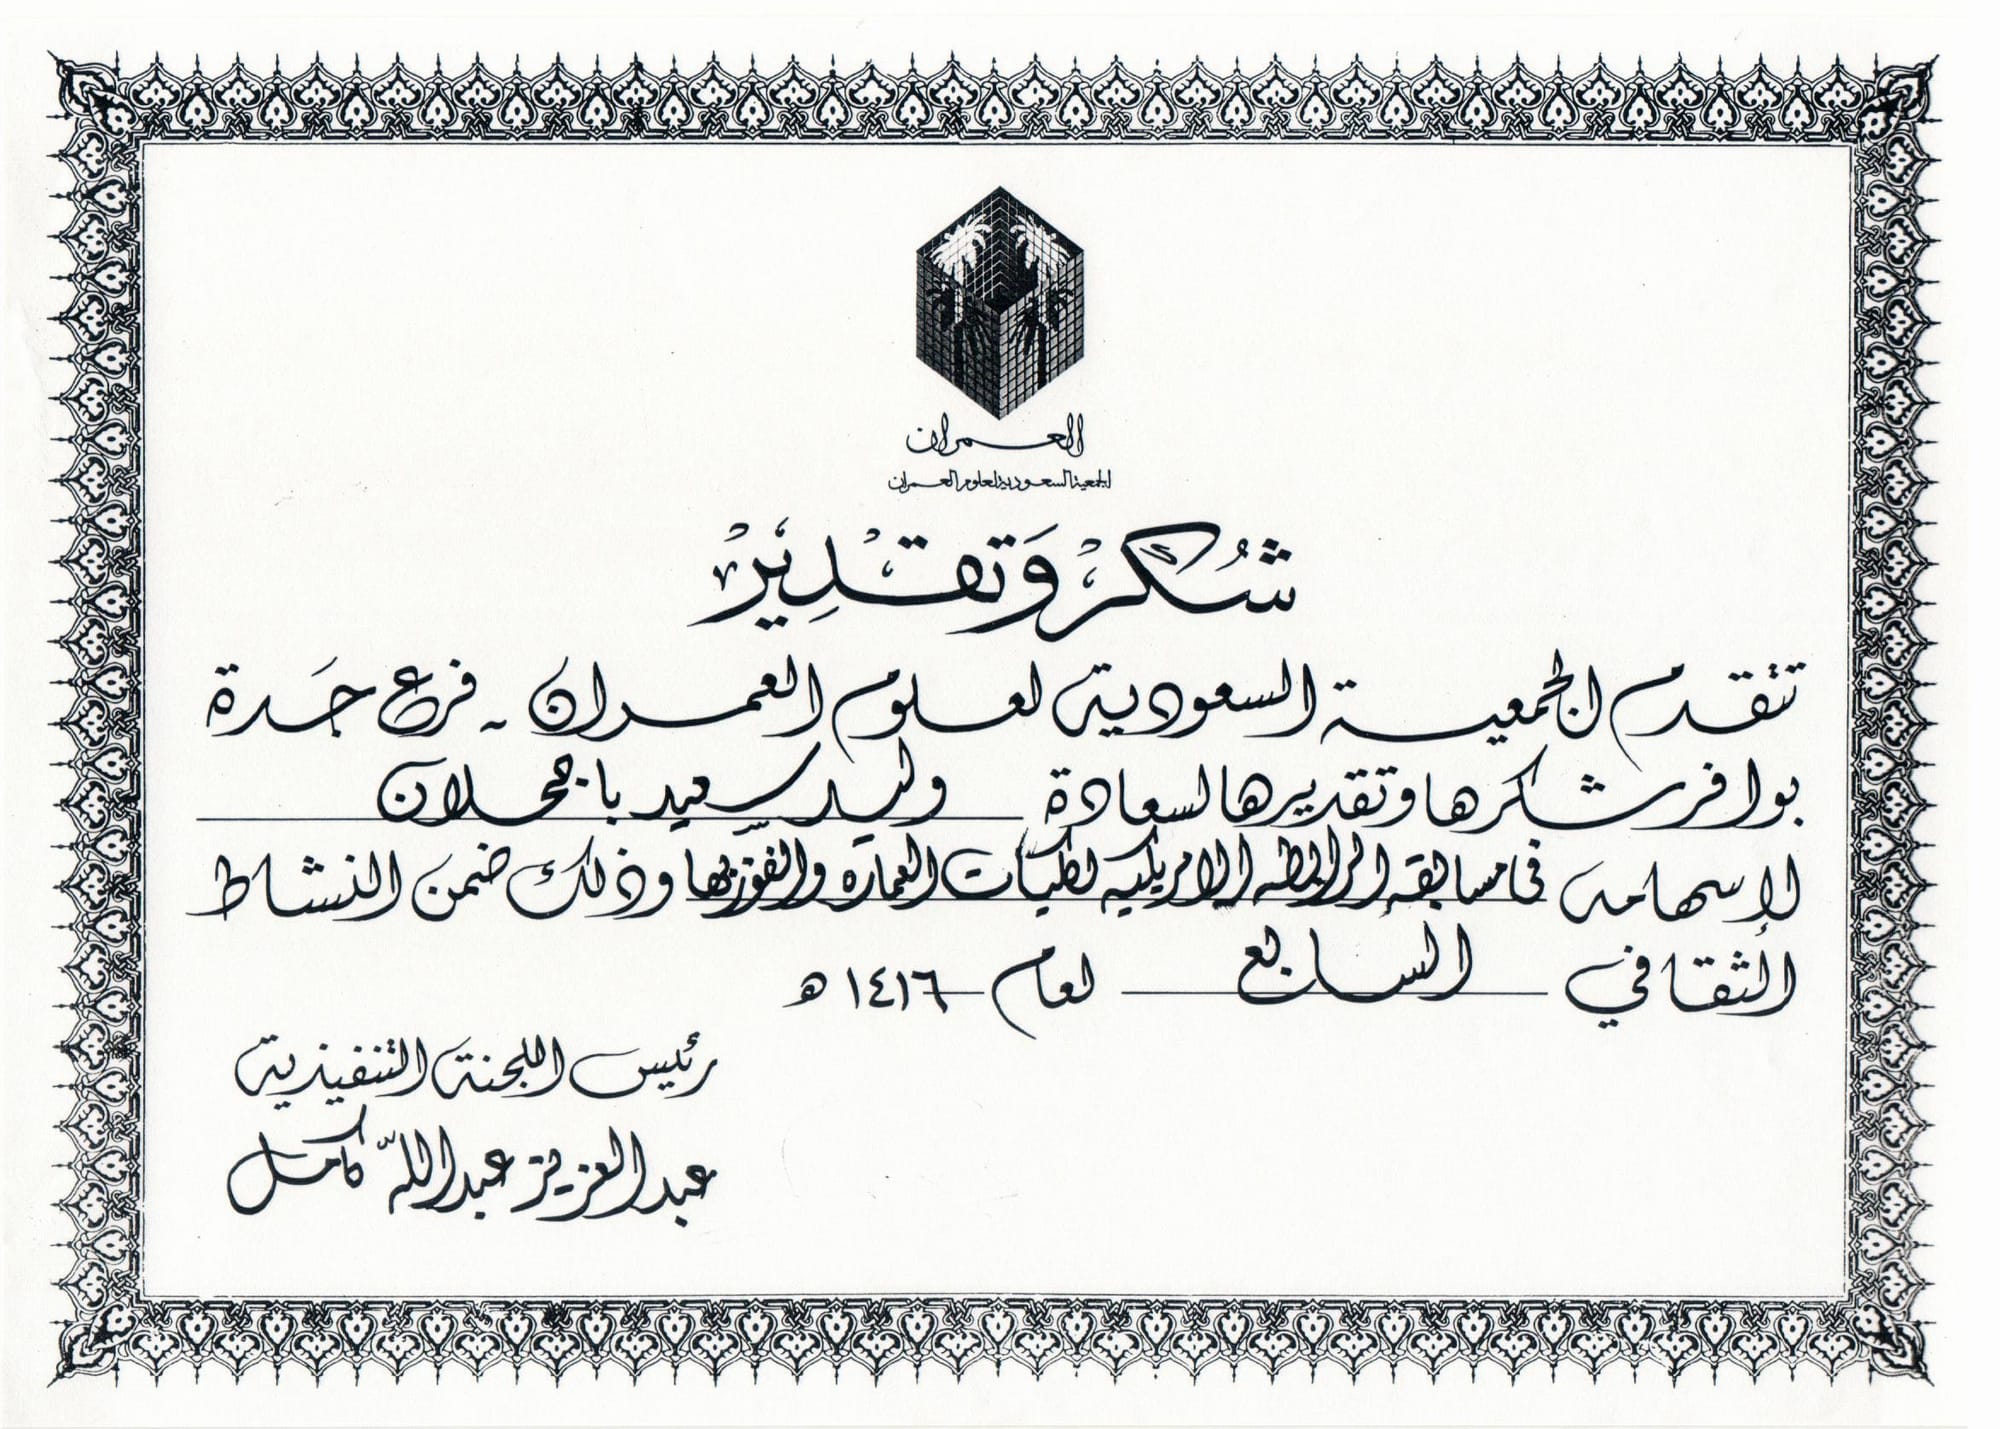 العمران
الجمعية السعودية لعلوم العمران
شُكْرٌ وَتَقْدِيْرٌ
تتقدم الجمعية السعودية لعلوم العمران - فرع جَدة
بوافر شكرها وتقديرها لسعادة وليد سعيد باجحلان
لإسهامه في مسابقة الرابطه الامريكيه لكليات العماره والفوز بها وذلك ضمن النشاط
الثقافي السابع لعام ١٤١٦ ه
رئيس اللجنة التنفيذية
عبد العزيز عبد اللّه كامل